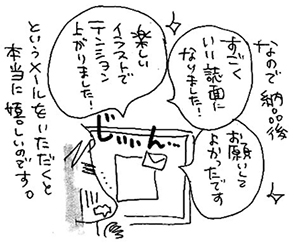 なので納品後
すごく
いい誌面に
なりました!
お願いして
よかったです
楽しい
イラストで
テンション
上がりました!
じぃぃん…
というメールをいただくと
本当に嬉しいのです。